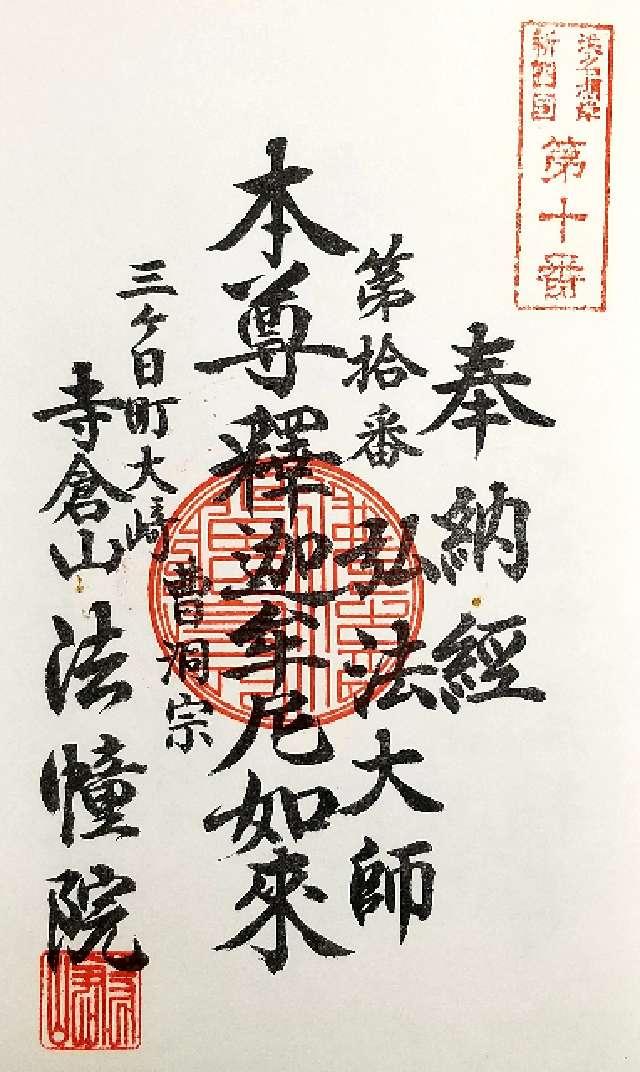 浜名湖岸
新四国
第十番
奉納經
第拾番
弘法大師
本尊釋迦牟尼如來
曹洞宗
三ヶ日町大崎
寺倉山法幢院